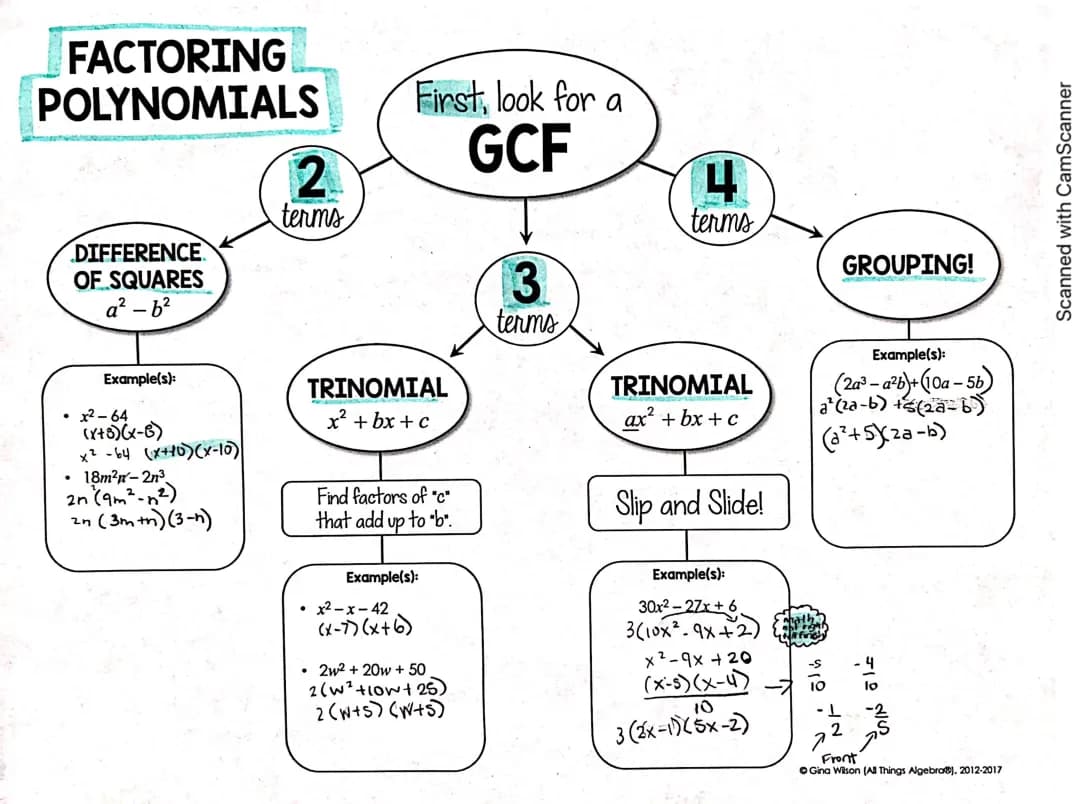 FACTORING
POLYNOMIALS
First, look for a
GCF
2
terms
4
terms
DIFFERENCE
OF SQUARES
a² – b²
3
terms
GROUPING!
Example(s):
• x² – 64
(x+8)(x-8)
x² - 64 (x+10)(x-10)
• 18m²n – 2n³
2n (9m² - n²)
2n (3m+n)(3-n)
TRINOMIAL
x² + bx + c
Find factors of "c"
that add up to "b".
Example(s):
• x² – x – 42
(x-7)(x+6)
• 2w² + 20w + 50
2(w²+10w+25)
2(w+5)(w+5)
TRINOMIAL
ax² + bx + c
Slip and Slide!
Example(s):
30x² – 27x + 6
3(10x² - 9x + 2)
x² - 9x + 20
(x-5)(x-4)
10
3(2x-1)(5x-2)
-5 -4
10 10
-1 -2
2 5
Front
Example(s):
(2a³ – a²b)+(10a – 5b)
a²(2a-b) +5(2a-b)
(a²+5)(2a-b)
© Gina Wilson (All Things Algebra®), 2012-2017
Scanned with CamScanner